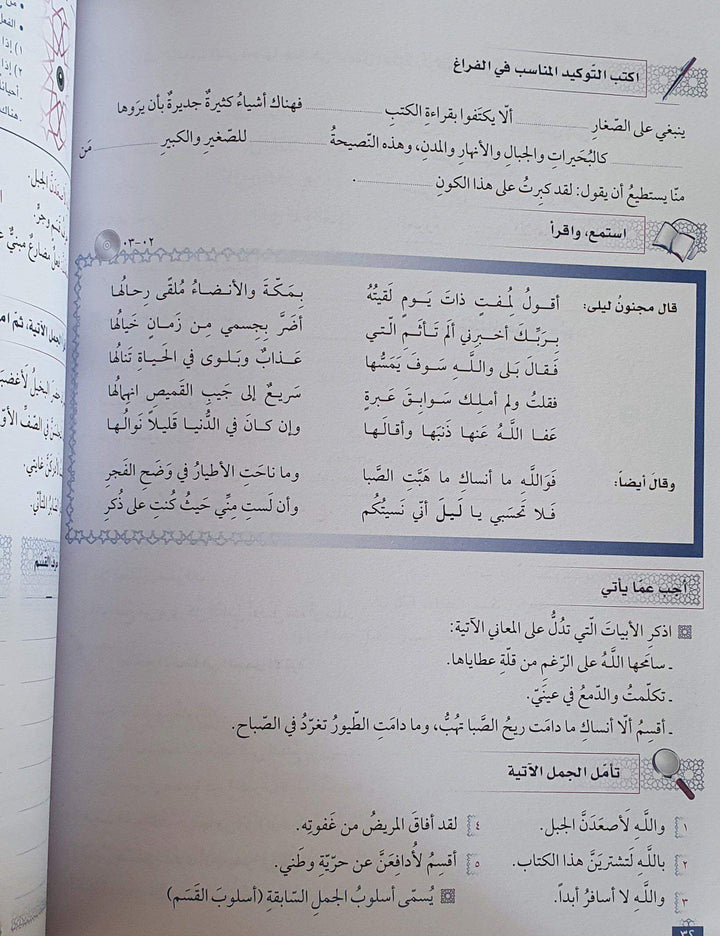 اكتب التّوكيد المناسب في الفراغ
ينبغي على الصّغارِ ............ ألّا يكتَفوا بقراءةِ الكتبِ ............ فهناك أشياءُ كثيرةٌ جديرةٌ بأن يرَوها
............ كالبُحَيراتِ والجبالِ والأنهارِ والمدنِ، وهذه النّصيحةُ ............ للصّغيرِ والكبيرِ ............ مَن
منّا يستطيعُ أن يقول: لقد كبِرتُ على هذا الكونِ ............ .
استمع، واقرأ
٠٢-٠٣
قال مجنونُ ليلى: أقـولُ لمُـفـتٍ ذاتَ يَـومٍ لَقِيتُهُ بِـمَـكّـةَ والأنـضـاءُ مُلقًى رِحالُها
بِـرَبِّـكَ أخـبِـرني ألَم تَـأثَـمِ الّـتي أضَرَّ بِجِسمي مِـن زَمـانٍ خَيالُها
فَـقالَ بَـلى واللَّـهِ سَـوفَ يَمَسُّها عَـذابٌ وبَـلوى في الحَـياةِ تَنالُها
فقلتُ ولم أملِـك سَـوابِـقَ عَبرةٍ سَريعٌ إلى جَيبِ القَميصِ انهِمالُها
عَـفـا اللَّـهُ عَنها ذَنبَها وأقالَـها وإن كـانَ في الدُّنيـا قَليلاً نَوالُـها
وقالَ أيضاً: فَوَاللَّـهِ ما أنساكِ ما هَبَّتِ الصَّبا وما ناحَتِ الأطيارُ في وَضَحِ الفَجرِ
فَـلا تَحسَبي يـا لَـيـلَ أنّي نَسيتُكُم وأن لَستِ مِنِّي حَيثُ كُنتِ على ذُكرِ
أجب عمّا يأتي
اذكرِ الأبياتَ الّتي تدُلُّ على المعاني الآتية:
ـ سامَحها اللَّـهُ على الرّغمِ من قلّةِ عطاياها.
ـ تكلّمتُ والدّمعُ في عينَيّ.
ـ أقسِمُ ألّا أنساكِ ما دامَت ريحُ الصَّبا تهُبُّ، وما دامَتِ الطّيورُ تغرّدُ في الصّباح.
تأمّل الجمل الآتية
١ واللَّـهِ لَأصعَدَنَّ الجبل.
٢ باللَّـهِ لَتشتريَنَّ هذا الكتاب.
٣ واللَّـهِ لا أسافرُ أبداً.
٤ لقد أفاقَ المريضُ من غَفوتِه.
٥ أقسِمُ لأُدافِعَنَّ عن حرّيّةِ وطَني.
يُسمّى أسلوبُ الجملِ السّابقةِ (أسلوبَ القَسَم)
٣٢